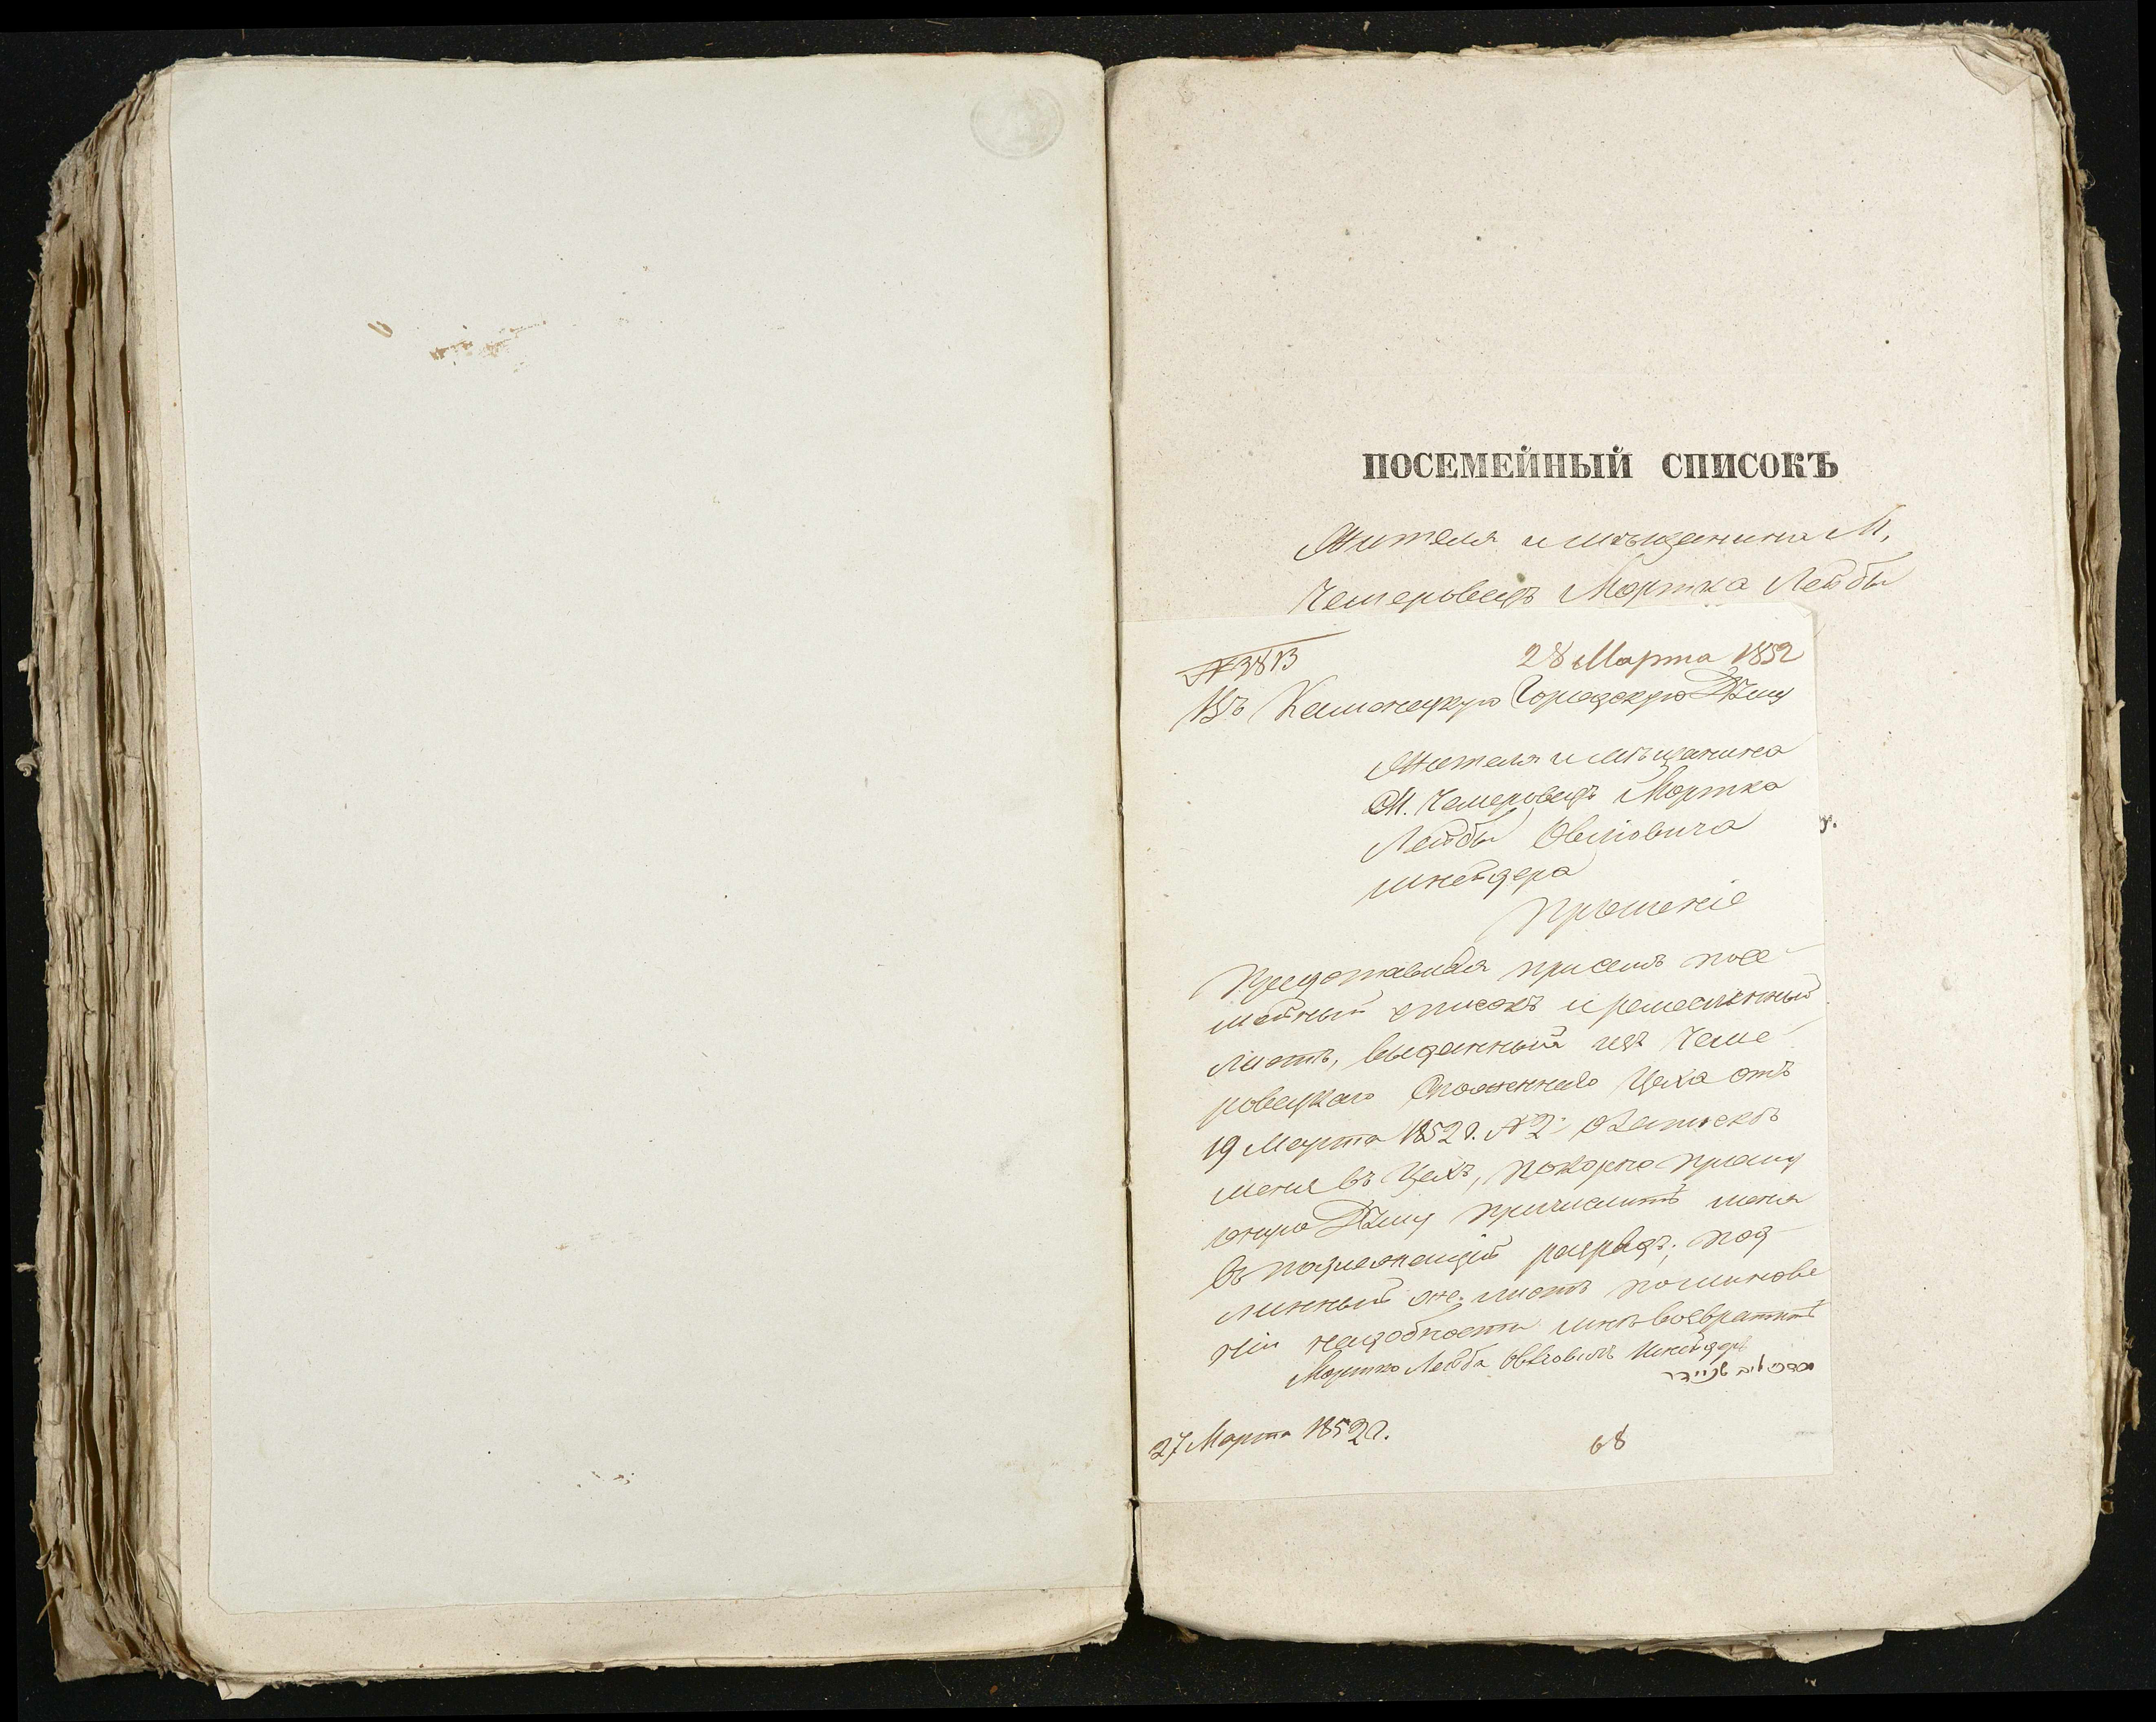 ПОСЕМЕЙНЫЙ СПИСОКЪ
Жителя и мѣщанина М.
Чемеровецъ Мортка Лейбы
№ 3813
28 Марта 1852
Въ Каменецкую Городскую Думу
Жителя и мѣщанина
М. Чемеровецъ Мортка
Лейбы Овшіовича
Шнейдера
у.
Прошеніе
Представляя присемъ посе-
мейный списокъ и ремесленный
листъ, выданный изъ Чеме-
ровецкаго Цеха отъ
19 Марта 1852 г. № 2
меня въ Цехъ, покорно прошу
оную Думу причислить меня
въ подлежащій разрядъ; под-
линный же листъ поминове-
ніи надобности мнѣ возвратить
Мортко Лейба Овшіовичъ Шнейдеръ
מרדכי ליב שניידר
27 Марта 1852 г.
68